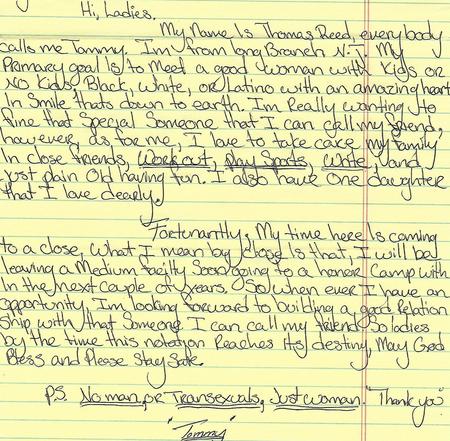 Hi, Ladies.
My Name Is Thomas Reed, everybody
calls me Tammy. I'm from long Branch N.J. My
Primary goal Is to Meet a good woman with Kids or
No Kids, Black, White, or Latino with an amazing heart
In Smile thats down to earth. Im Really wanting to
fine that Special Someone that I can call my friend,
however, as for me, I love to take care my family
In close friends, Work out, play Sports, Write, and
just plain Old having fun. I also have One daughter
that I love dearly.
Fortunantly, My time here Is coming
to a close, What I mean by close Is that, I will be
leaving a Medium facilty Soon going to a honor Camp with
In the next couple of years. So when ever I have an
opportunity, Im looking forward to building a good Relation
Ship with that Someone I can call my friend, So ladies
by the time this notation Reaches Its destiny, May God
Bless and Please Stay Safe.
P.S. No man, or Transexuals, Just woman. "Thank you"
"Tommy"